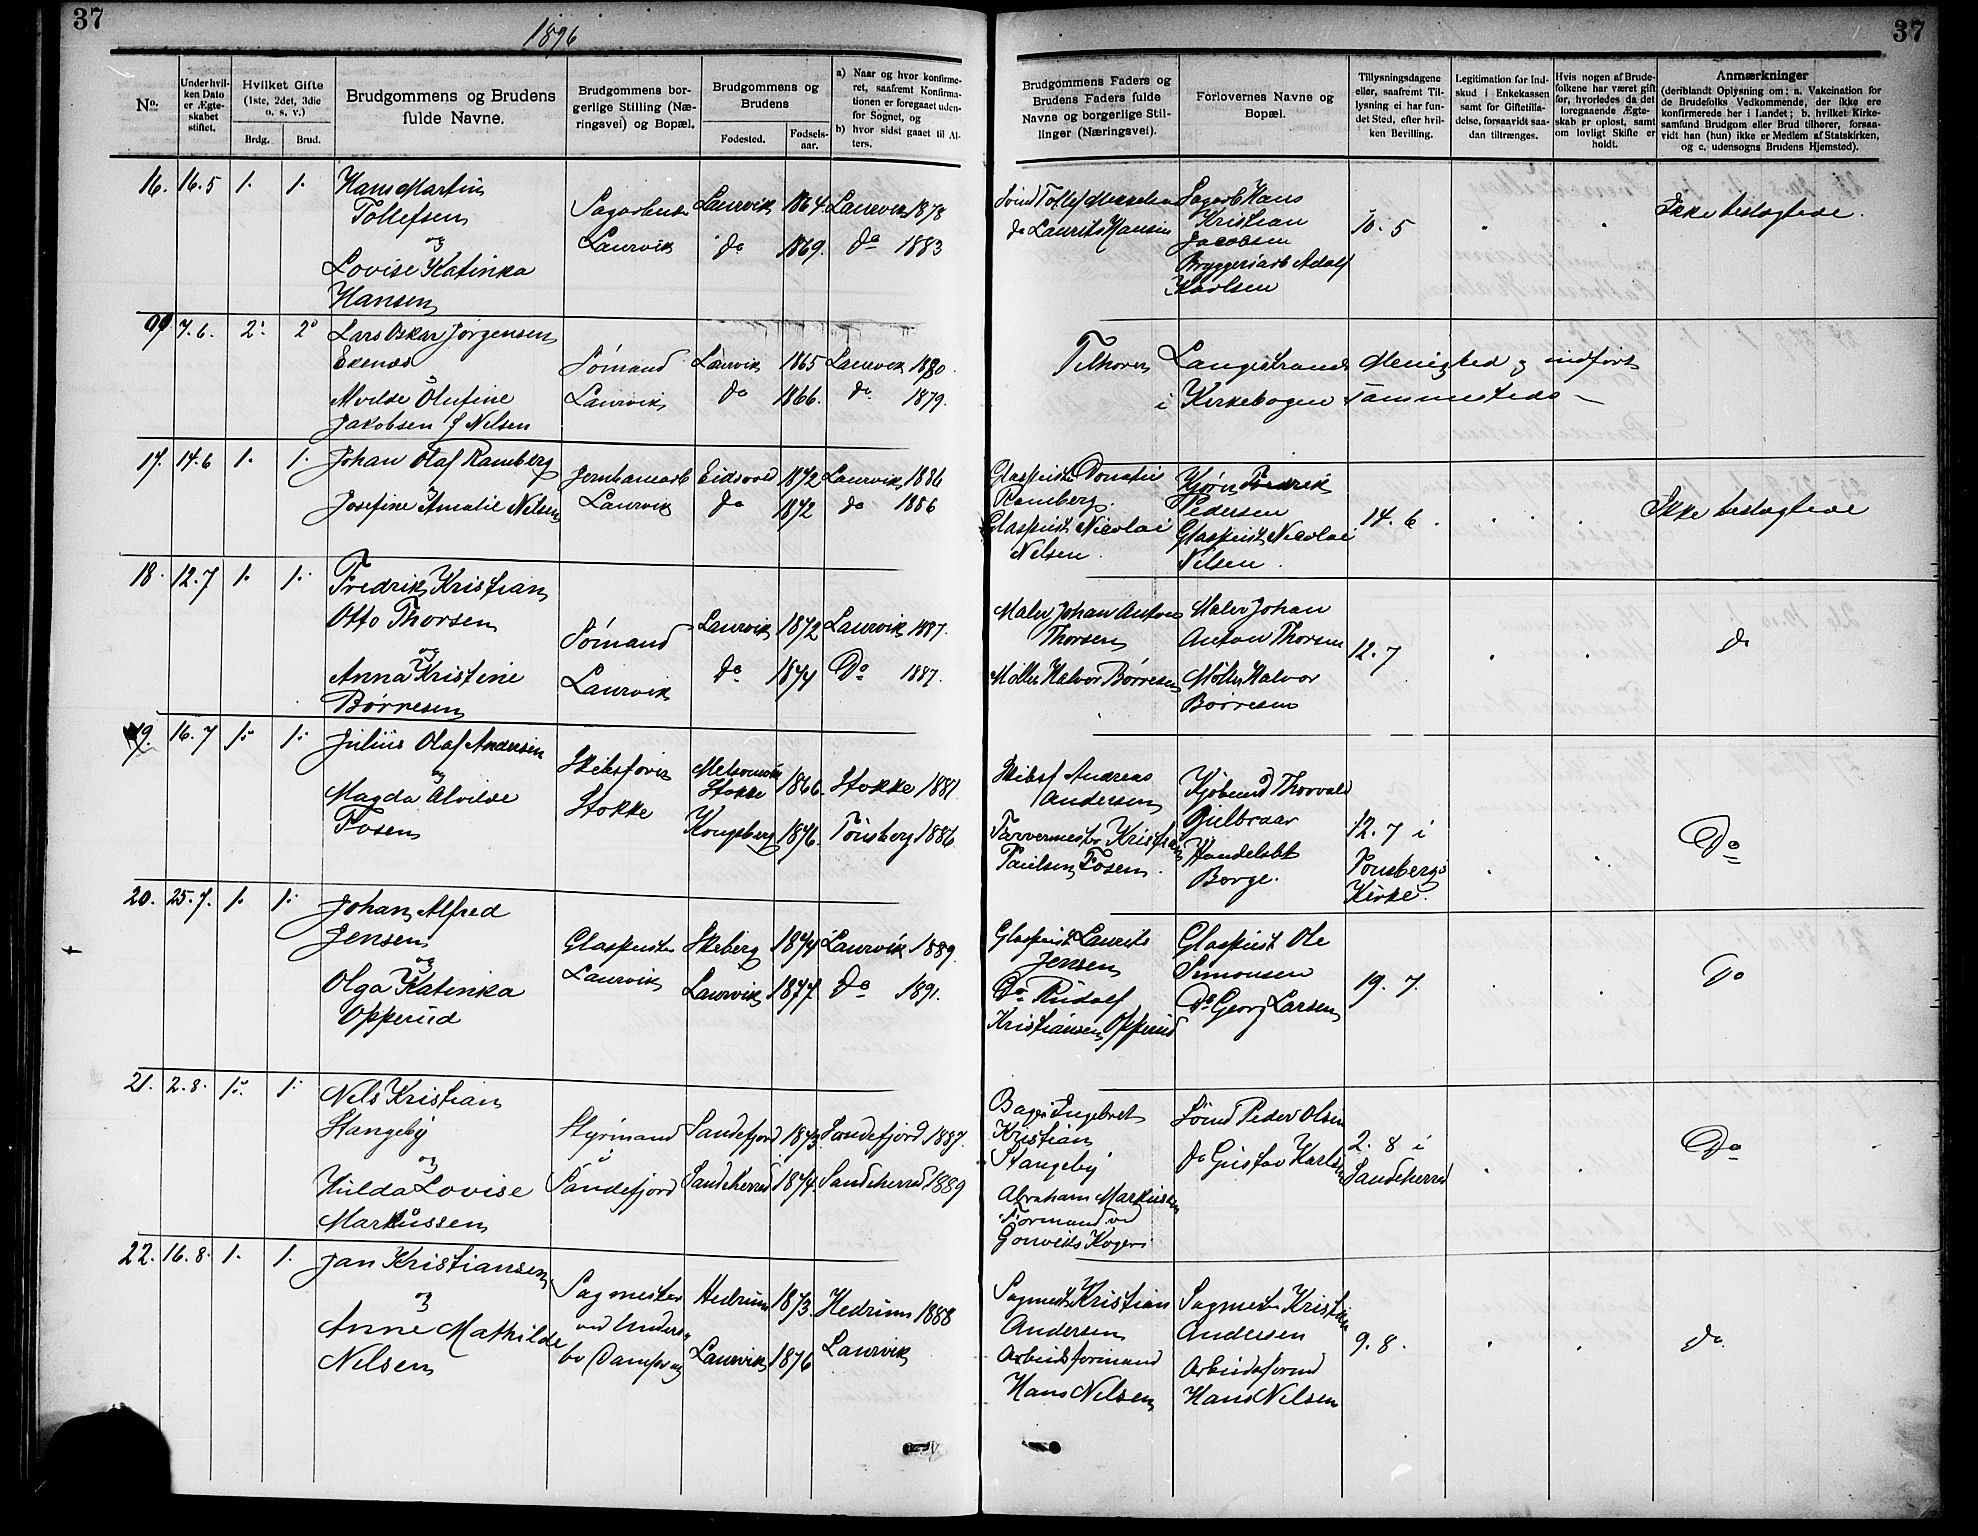 37
1896
37
No.
Under hvilken Dato er Ægteskabet stiftet.
Hvilket Gifte (1ste, 2det, 3die o. s. v.)
Brdg.
Brud.
Brudgommens og Brudens fulde Navne.
Brudgommens borgerlige Stilling (Næringsvei) og Bopæl.
Brudgommens og Brudens
Fødested.
Fødselsaar.
a) Naar og hvor konfirmeret, saafremt Konfirmationen er foregaaet udenfor Sognet, og
b) hvor sidst gaaet til Alters.
Brudgommens Faders og Brudens Faders fulde Navne og borgerlige Stillinger (Næringsvei).
Forlovernes Navne og Bopæl.
Tillysningsdagene eller, saafremt Tillysning ei har fundet Sted, efter hvilken Bevilling.
Legitimation for Indskud i Enkekassen samt for Giftetilladelse, forsaavidt saadan tiltrænges.
Hvis nogen af Brudefolkene har været gift før, hvorledes da det foregaaende Ægteskab er opløst, samt om lovligt Skifte er holdt.
Anmærkninger
(deriblandt Oplysning om: a. Vakcination for de Brudefolks Vedkommende, der ikke ere konfirmerede her i Landet; b. hvilket Kirkesamfund Brudgom eller Brud tilhører, forsaavidt han (hun) ikke er Medlem af Statskirken, og c. udensogns Brudens Hjemsted).
16. 16.5 1. 1. Hans Martin
Tollefsen
og
Lovise Katinka
Hansen
Sagarbeider
Laurvik
Laurvik 1864. Laurvik 1878
do 1869. do 1883
Sømd Tollef
do Laurits Hansen
Sagarb Hans
Kristian
Jacobsen
Bryggeriarb Adolf
Karlsen
10. 5
Ikke beslægtede.
7.6. 2. 2. Lars Oskar Jørgensen
Ekenæs
og
Alvilde Olufine
Jakobsen f Nilsen
Sømand
Laurvik
Laurvik 1865 Laurvik 1880.
do 1866. do 1879.
Tilhører Langestrands Menighed og indført
i Kirkebogen sammesteds
17. 14.6 1. 1. Johan Olaf Ramberg
og
Josefine Amalie Nilsen
Jernbanearb
Laurvik
Eidsvold 1872 Laurvik 1886
do 1872 do 1886
Glaspust Donatus
Ramberg.
Glaspust Nicolai
Nelsen.
Fredrik
Pedersen
Glaspust Nicolai
Nilsen.
14. 6.
Ikke beslægtede
18. 12.7 1. 1. Fredrik Kristian
Otto Thorsen
og
Anna Kristine
Børresen
Sømand
Laurvik
Laurvik 1872 Laurvik 1887.
do 1874 Do 1887.
Maler Johan Anton
Thorsen
Møller Halvor Børresen
Maler Johan
Anton Thorsen
Møller Halvor
Børresen
12.7
do
19. 16.7 1. 1. Julius Olaf Andersen
og
Magda Alvilde
Fosen
Skibsfører
Stokke
Melsomvik
Stokke 1866. Stokke 1881.
Kongsberg 1876. Tönsberg 1886.
Skibsf Andreas
Andersen
Farvermester Kristian
Paulsen Fosen.
Kjøbmd Thorvald
Gulbraar
Handelsbt
Borge.
12. 7 i
Tonsbergs
Kirke.
Do
20. 25.7. 1. 1. Johan Alfred
Jensen
og
Olga Katinka
Opperud
Glaspuster
Laurvik
Skeberg 1874 Laurvik 1889.
Laurvik 1877. do 1891.
Glaspust Laurits
Jensen
Do Rudolf
Kristiansen Opperud
Glaspust Ole
Simonsen
Do Georg Larsen
19. 7.
Do
21. 2.8. 1. 1. Nils Kristian
Stangeby
og
Hulda Lovise
Markussen
Styrmand
Sandefjord
Sandefjord 1873. Sandefjord 1887.
Sandeherred 1874. Sandeherred 1889
Bager Ingebret
Kristian
Stangeby
Abraham Markussen
Formand ved
Kogeri
Sømd Peder Olsen
do Gustav Karlsen
2. 8 i
Sandeherred
Do
22. 16.8. 1. 1. Jan Kristiansen
og
Anne Mathilde
Nilsen
Sagmester
ved
bo Dampsag
Hedrum 1873. Hedrum 1888
Laurvik 1876 Laurvik
Sagmest Kristian
Andersen
Arbeidsformand
Hans Nelsen
Sagmest Kristian
Andersen
Arbeidsformd
Hans Nelsen
9. 8.
do.